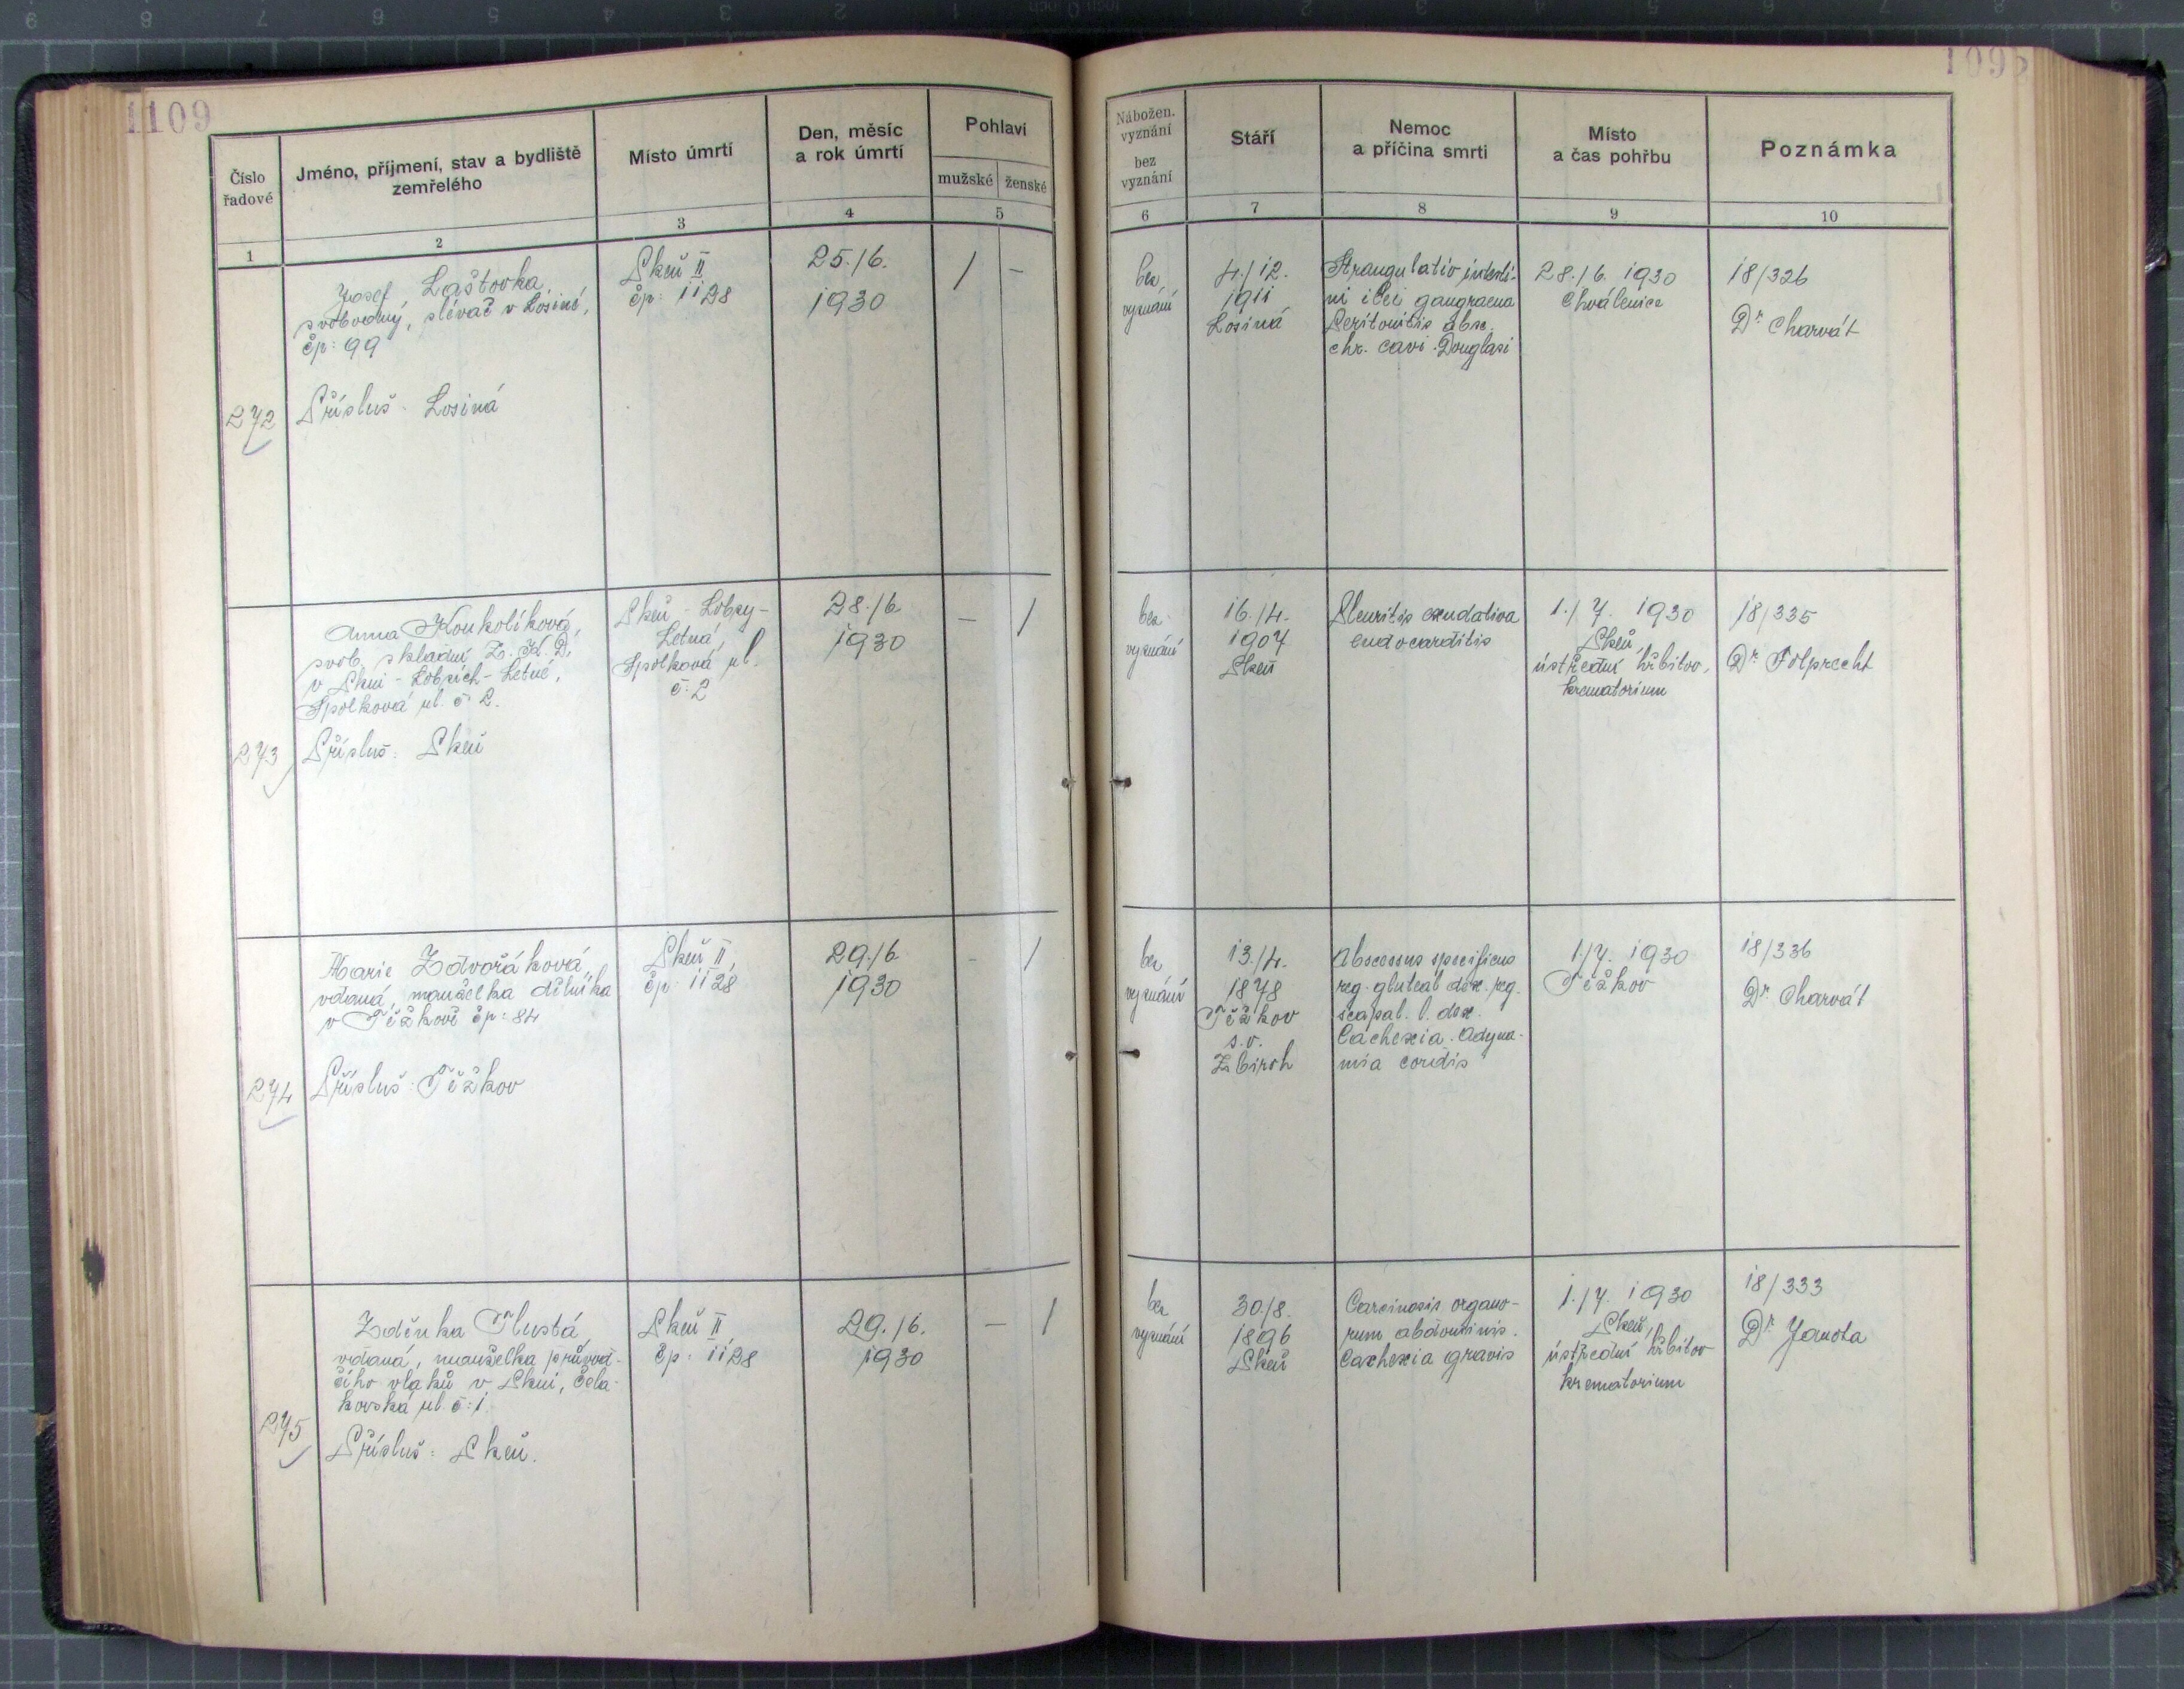 1109
1095
Číslo
řadové
Jméno, příjmení, stav a bydliště
zemřelého
Místo úmrtí
Den, měsíc
a rok úmrtí
Pohlaví
mužské
ženské
Nábožen.
vyznání
bez
vyznání
Stáří
Nemoc
a příčina smrti
Místo
a čas pohřbu
Poznámka
1
2
3
4
5
6
7
8
9
10
272
Josef Laštovka,
svobodný, slévač v Losiné,
čp: 99
Přísluš. Losiná
Pkeň II
čp: 1128
25./6.
1930
/
-
bez
vyznání
4./12.
1911
Losiná
Strangulatio intesti-
ni ilei gangraena
Peritonitis absc.
chr. cavi. Douglasi
28./6. 1930
Chválenice
18/326
Dr Charvát
273
Anna Koukolíková,
svob. skladní Z. K. D.
v Pkni - Lobzích - Letné,
Spolková ul. č. 2.
Přísluš: Pkeň
Pkeň - Lobzy -
Letná,
Spolková ul.
č: 2
28./6
1930
-
/
bez
vyznání
16./4.
1907
Pkeň
Pleuritis exudativa
endocarditis
1./7. 1930
Pkeň,
ústřední hřbitov,
krematorium
18/335
Dr Folprecht
274
Marie Zdvořáková,
vdaná, manželka dělníka
v Těškově čp: 84
Přísluš: Těškov
Pkeň II,
čp: 1128
29./6
1930
-
/
bez
vyznání
13./4.
1878
Těškov
s. o.
Zbiroh
Abscessus specificus
reg. gluteal dex. reg.
scapal. l. dex.
Cachexia. Adyna-
mia cordis
1./7. 1930
Těškov
18/336
Dr Charvát
275
Zděnka Tlustá,
vdaná, manželka průvod-
čího vlaků v Pkni, Čela-
kovská ul. č: 1.
Přísluš: Pkeň.
Pkeň II,
čp: 1128
29./6.
1930
-
/
bez
vyznání
30./8.
1896
Pkeň
Carcinosis organo-
rum abdominis.
Cachexia gravis
1./7. 1930
Pkeň,
ústřední hřbitov
krematorium
18/333
Dr Janota